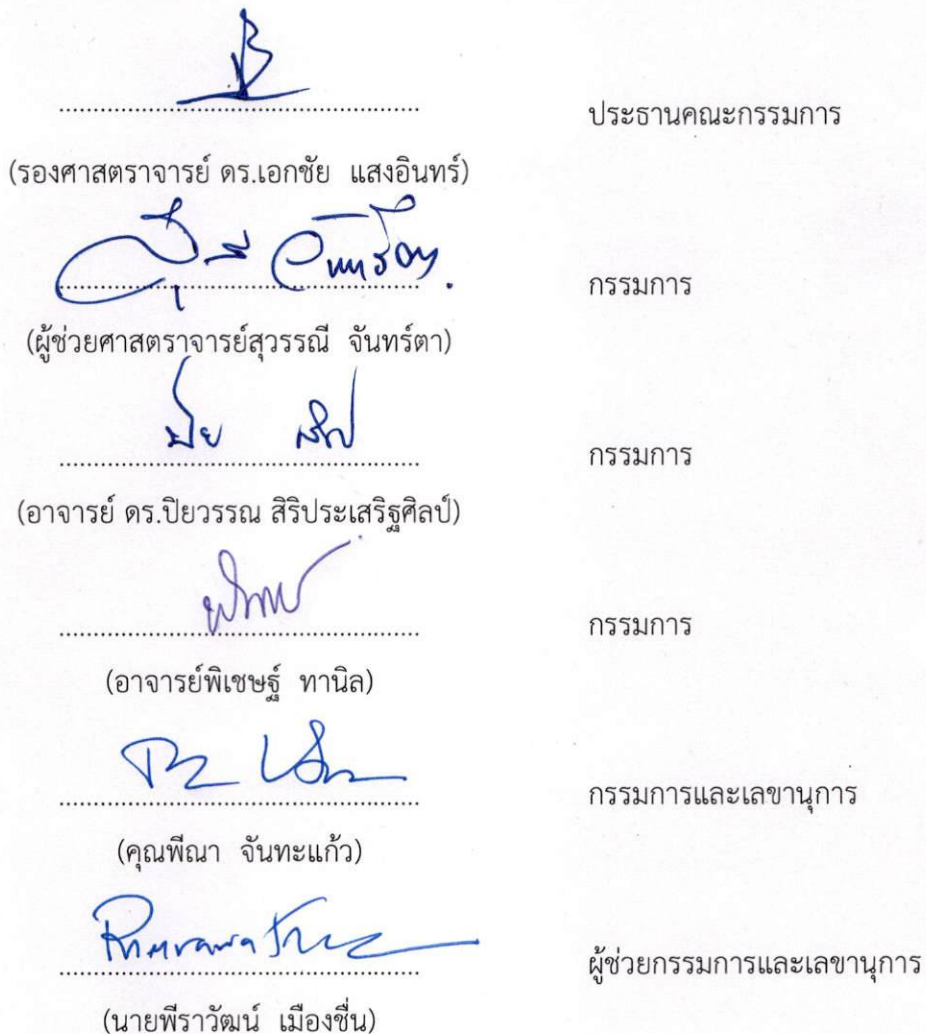 ประธานคณะกรรมการ
(รองศาสตราจารย์ ดร.เอกชัย แสงอินทร์)
กรรมการ
(ผู้ช่วยศาสตราจารย์สุวรรณี จันทร์ตา)
กรรมการ
(อาจารย์ ดร.ปิยวรรณ สิริประเสริฐศิลป์)
กรรมการ
(อาจารย์พิเชษฐ์ ทานิล)
กรรมการและเลขานุการ
(คุณพีณา จันทะแก้ว)
ผู้ช่วยกรรมการและเลขานุการ
(นายพีราวัฒน์ เมืองชื่น)